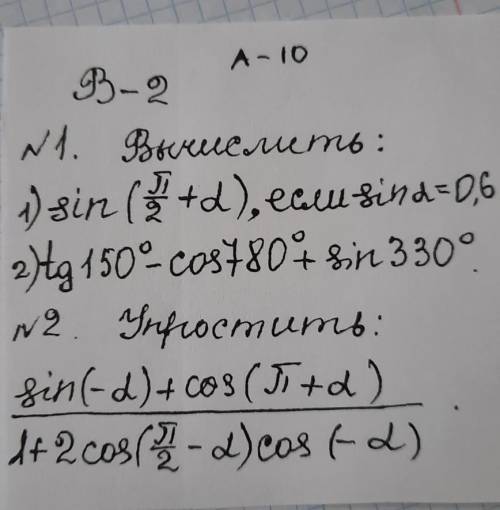 А-10
В-2
№1. Вычислить:
1) sin(π/2 + α), если sin α = 0,6
2) tg 150° - cos 780° + sin 330°.
№2. Упростить:
sin(-α) + cos(π + α)
1 + 2cos(π/2 - α) cos(-α)